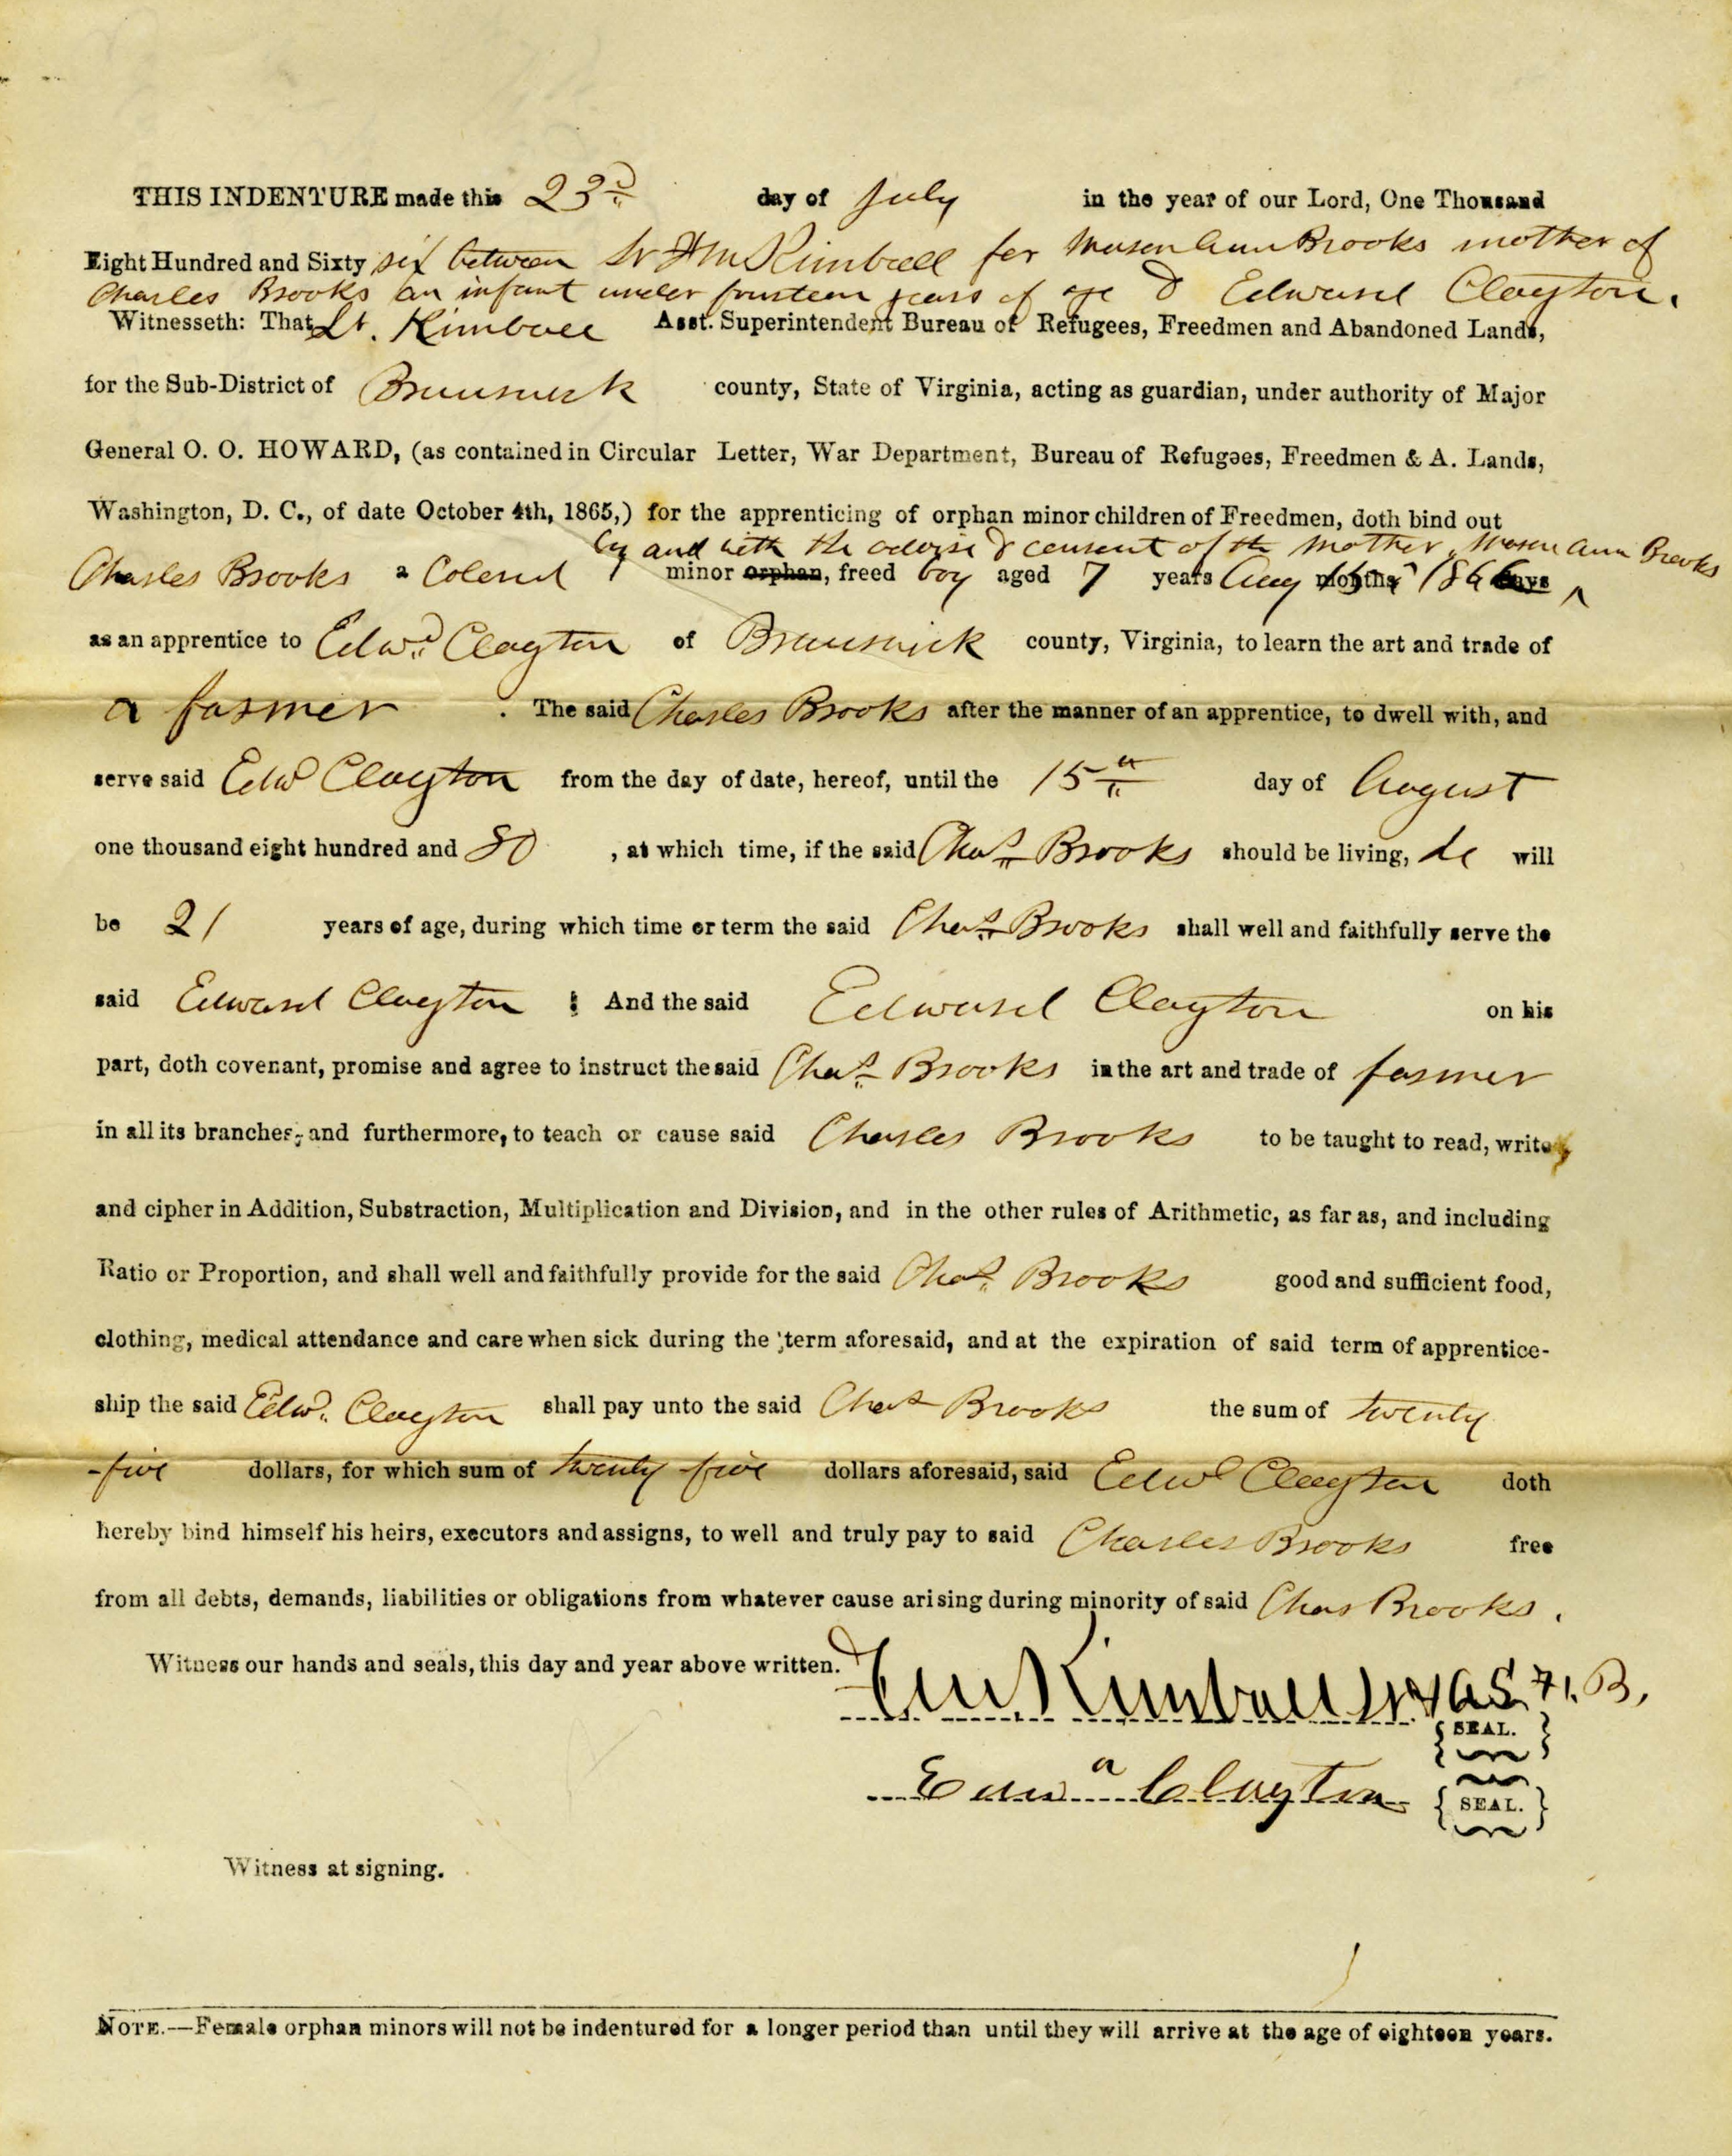 THIS INDENTURE made this 23d day of July in the year of our Lord, One Thousand
Eight Hundred and Sixty six between Lt Kimball for Ann Brooks mother of
Charles Brooks an infant under fourteen years of age & Edward Clayton.
Witnesseth: That Lt. Kimball Asst. Superintendent Bureau of Refugees, Freedmen and Abandoned Lands,
for the Sub-District of Brunswick county, State of Virginia, acting as guardian, under authority of Major
General O. O. HOWARD, (as contained in Circular Letter, War Department, Bureau of Refugees, Freedmen & A. Lands,
Washington, D. C., of date October 4th, 1865,) for the apprenticing of orphan minor children of Freedmen, doth bind out
by and with the advise & consent of the mother, Ann Brooks
Charles Brooks a Colored minor orphan, freed boy aged 7 years Aug 15th 1866 days
as an apprentice to Edwd. Clayton of Brunswick county, Virginia, to learn the art and trade of
a farmer . The said Charles Brooks after the manner of an apprentice, to dwell with, and
serve said Edwd Clayton from the day of date, hereof, until the 15th day of August
one thousand eight hundred and 80 , at which time, if the said Chas Brooks should be living, he will
be 21 years of age, during which time or term the said Chas Brooks shall well and faithfully serve the
said Edward Clayton ; And the said Edward Clayton on his
part, doth covenant, promise and agree to instruct the said Chas Brooks in the art and trade of farmer
in all its branches, and furthermore, to teach or cause said Charles Brooks to be taught to read, write
and cipher in Addition, Substraction, Multiplication and Division, and in the other rules of Arithmetic, as far as, and including
Ratio or Proportion, and shall well and faithfully provide for the said Chas. Brooks good and sufficient food,
clothing, medical attendance and care when sick during the term aforesaid, and at the expiration of said term of apprentice-
ship the said Edwd. Clayton shall pay unto the said Chas Brooks the sum of twenty
-five dollars, for which sum of twenty five dollars aforesaid, said Edwd Clayton doth
hereby bind himself his heirs, executors and assigns, to well and truly pay to said Charles Brooks free
from all debts, demands, liabilities or obligations from whatever cause arising during minority of said Chas Brooks .
Witness our hands and seals, this day and year above written.
Kimball Lt & A.S. F. B.
SEAL.
Clayton
SEAL.
Witness at signing.
NOTE.—Female orphan minors will not be indentured for a longer period than until they will arrive at the age of eighteen years.